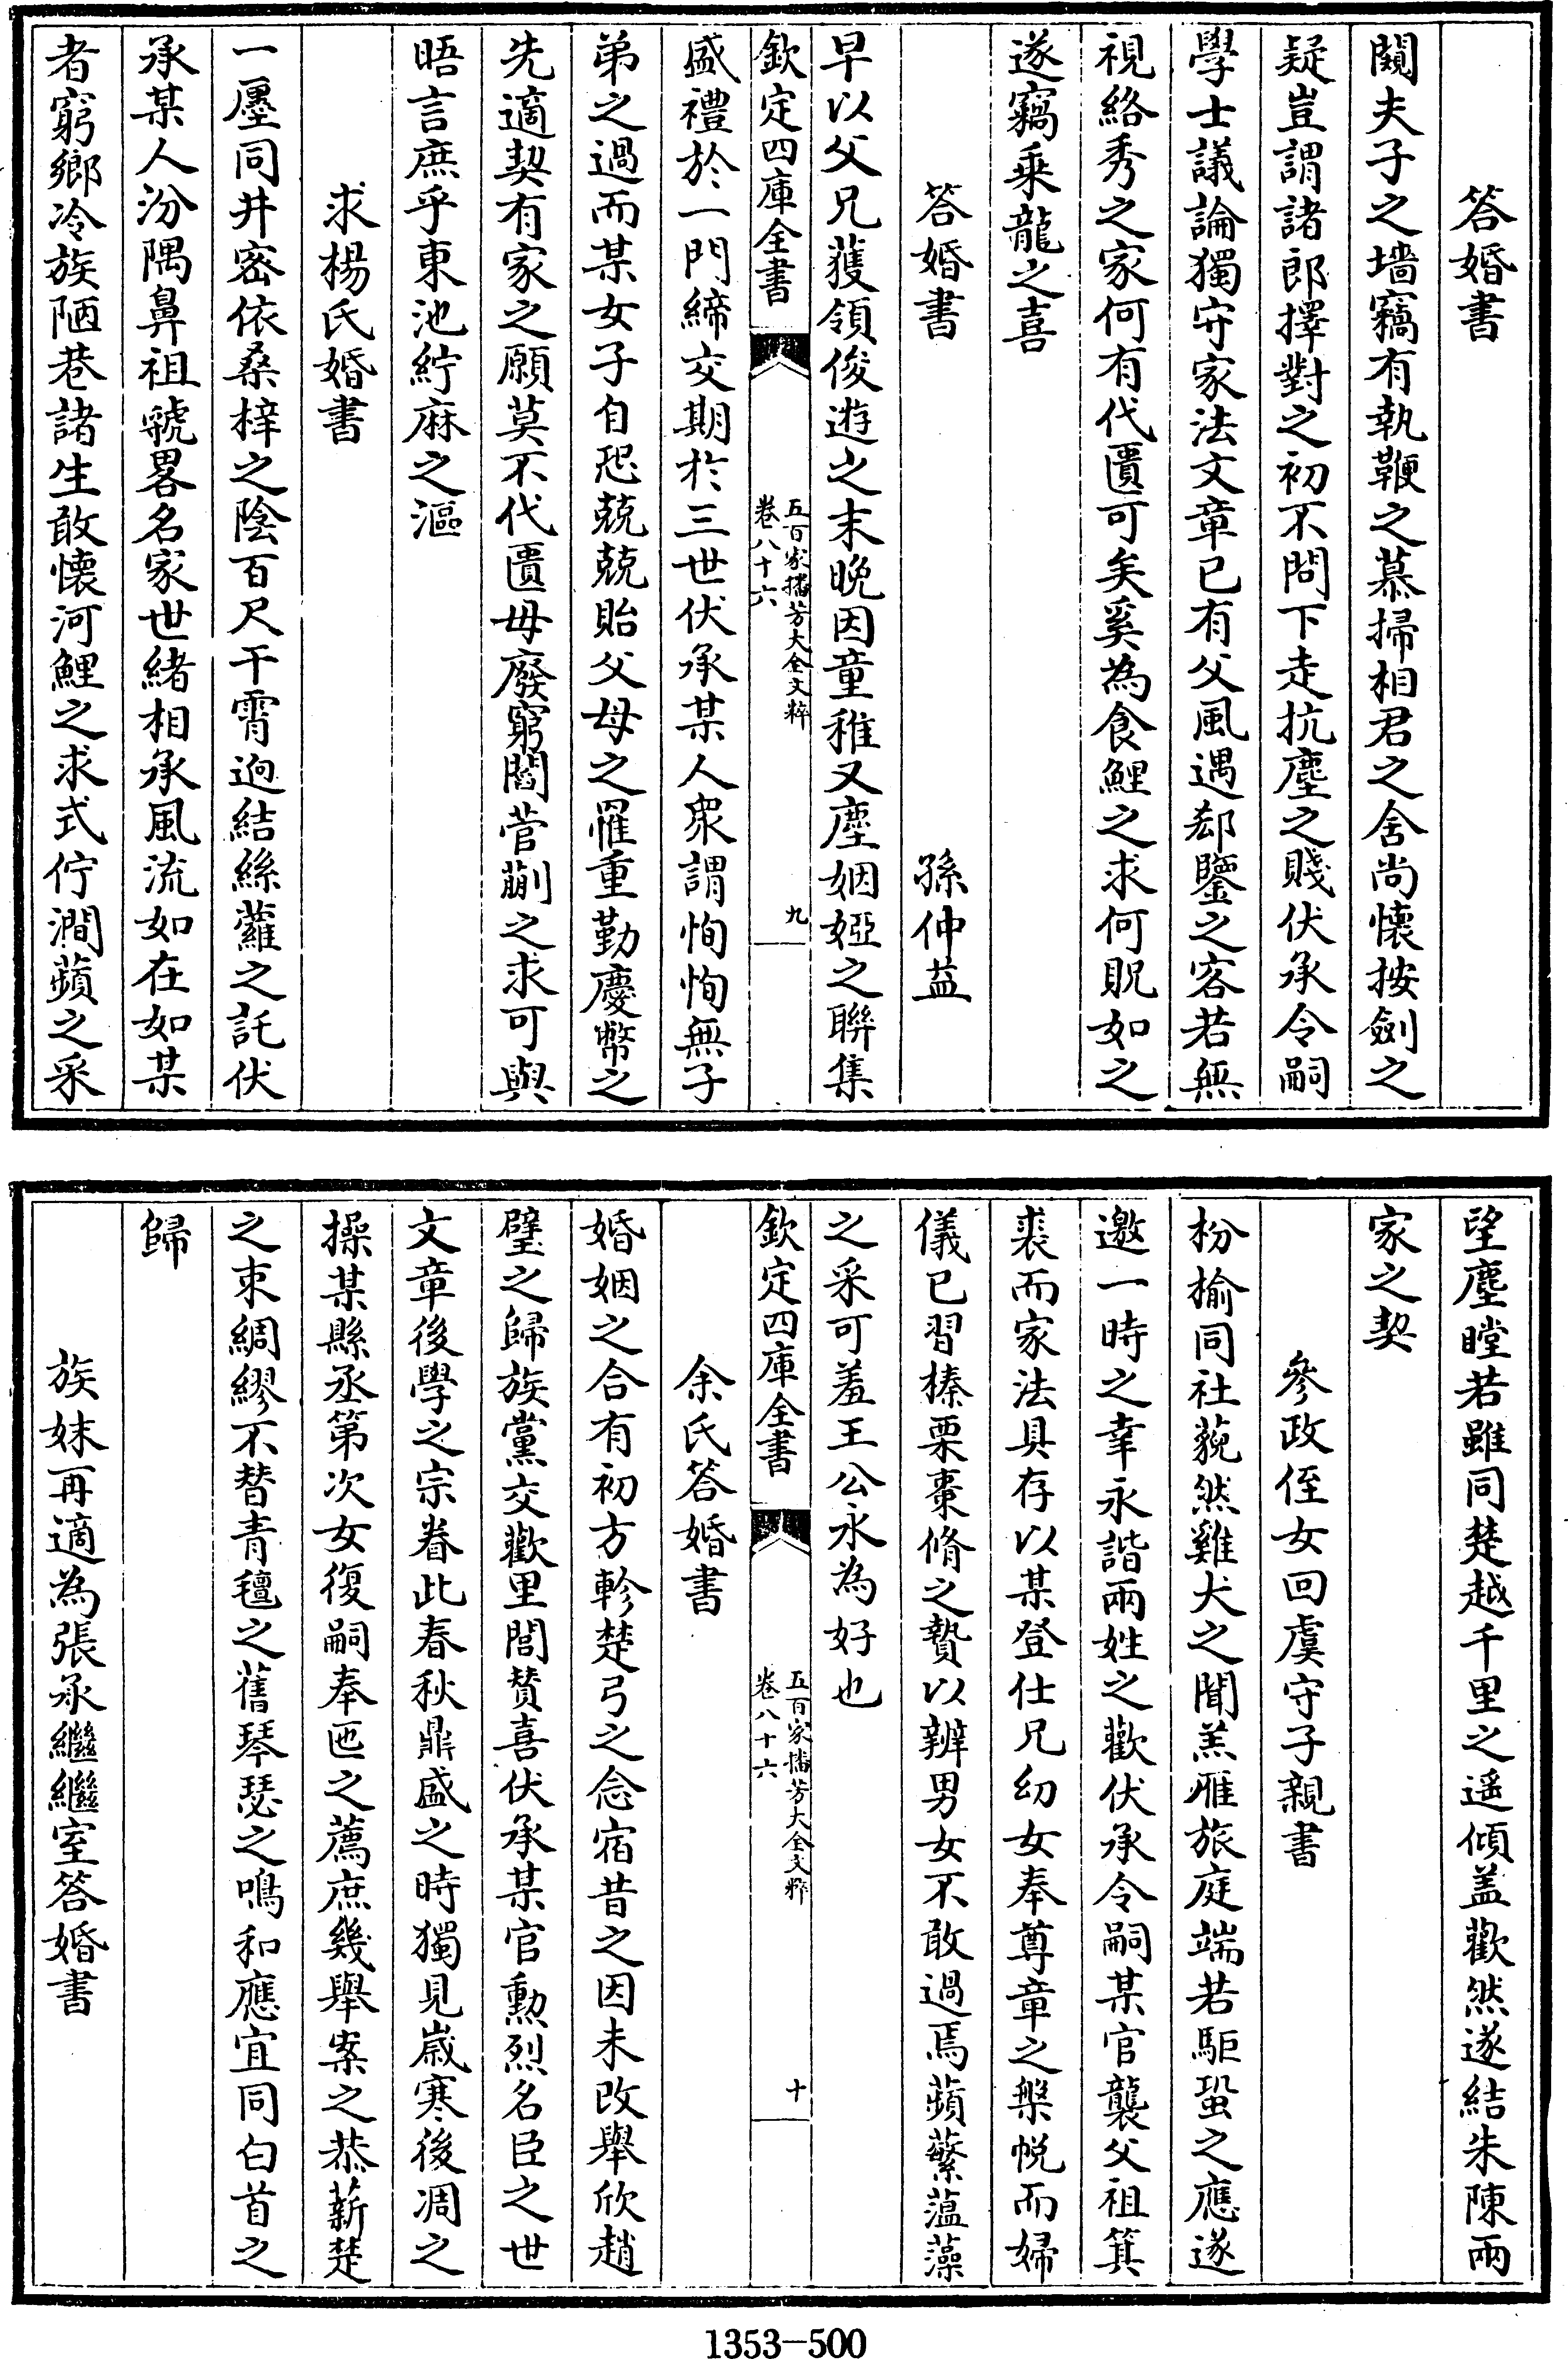 答婚書
闚夫子之墻竊有執鞭之慕掃相君之舍尚懷按劍之
疑豈謂諸郎擇對之初不問下走抗塵之賤伏承令嗣
學士議論獨守家法文章已有父風遇郄鑒之客若無
視絡秀之家何有代匱可矣奚為食鯉之求何貺如之
遂竊乘龍之喜
答婚書 孫仲益
早以父兄獲領俊遊之末晚因童稚又塵姻婭之聯集
欽定四庫全書 五百家播芳大全文粹 卷八十六 九
盛禮於一門締交期於三世伏承某人衆謂恂恂無子
弟之過而某女子自恐兢兢貽父母之罹重勤慶幣之
先適契有家之願莫不代匱毋廢窮閻菅蒯之求可與
晤言庶乎東池紵麻之漚
求楊氏婚書
一廛同井密依桑梓之陰百尺干霄逈結絲蘿之託伏
承某人汾隅鼻祖虢畧名家世緒相承風流如在如某
者窮鄉冷族陋巷諸生敢懷河鯉之求式佇澗蘋之采
望塵瞠若雖同楚越千里之遥傾盖歡然遂結朱陳兩
家之契
參政侄女回虞守子親書
枌榆同社藐然雞犬之聞羔雁旅庭端若駏蛩之應遂
邀一時之幸永諧兩姓之歡伏承令嗣某官襲父祖箕
裘而家法具存以某登仕兄幼女奉尊章之槃帨而婦
儀已習榛栗棗脩之贄以辨男女不敢過焉蘋蘩薀藻
之采可羞王公永為好也
欽定四庫全書 五百家播芳大全文粹 卷八十六 十
余氏答婚書
婚姻之合有初方軫楚弓之念宿昔之因未改舉欣趙
璧之歸族黨交歡里閭賛喜伏承某官勳烈名臣之世
文章後學之宗眷此春秋鼎盛之時獨見嵗寒後凋之
操某縣丞第次女復嗣奉匜之薦庶幾舉案之恭薪楚
之束綢繆不替青氊之舊琴瑟之鳴和應宜同白首之
歸
族妹再適為張承繼繼室答婚書
1353-500